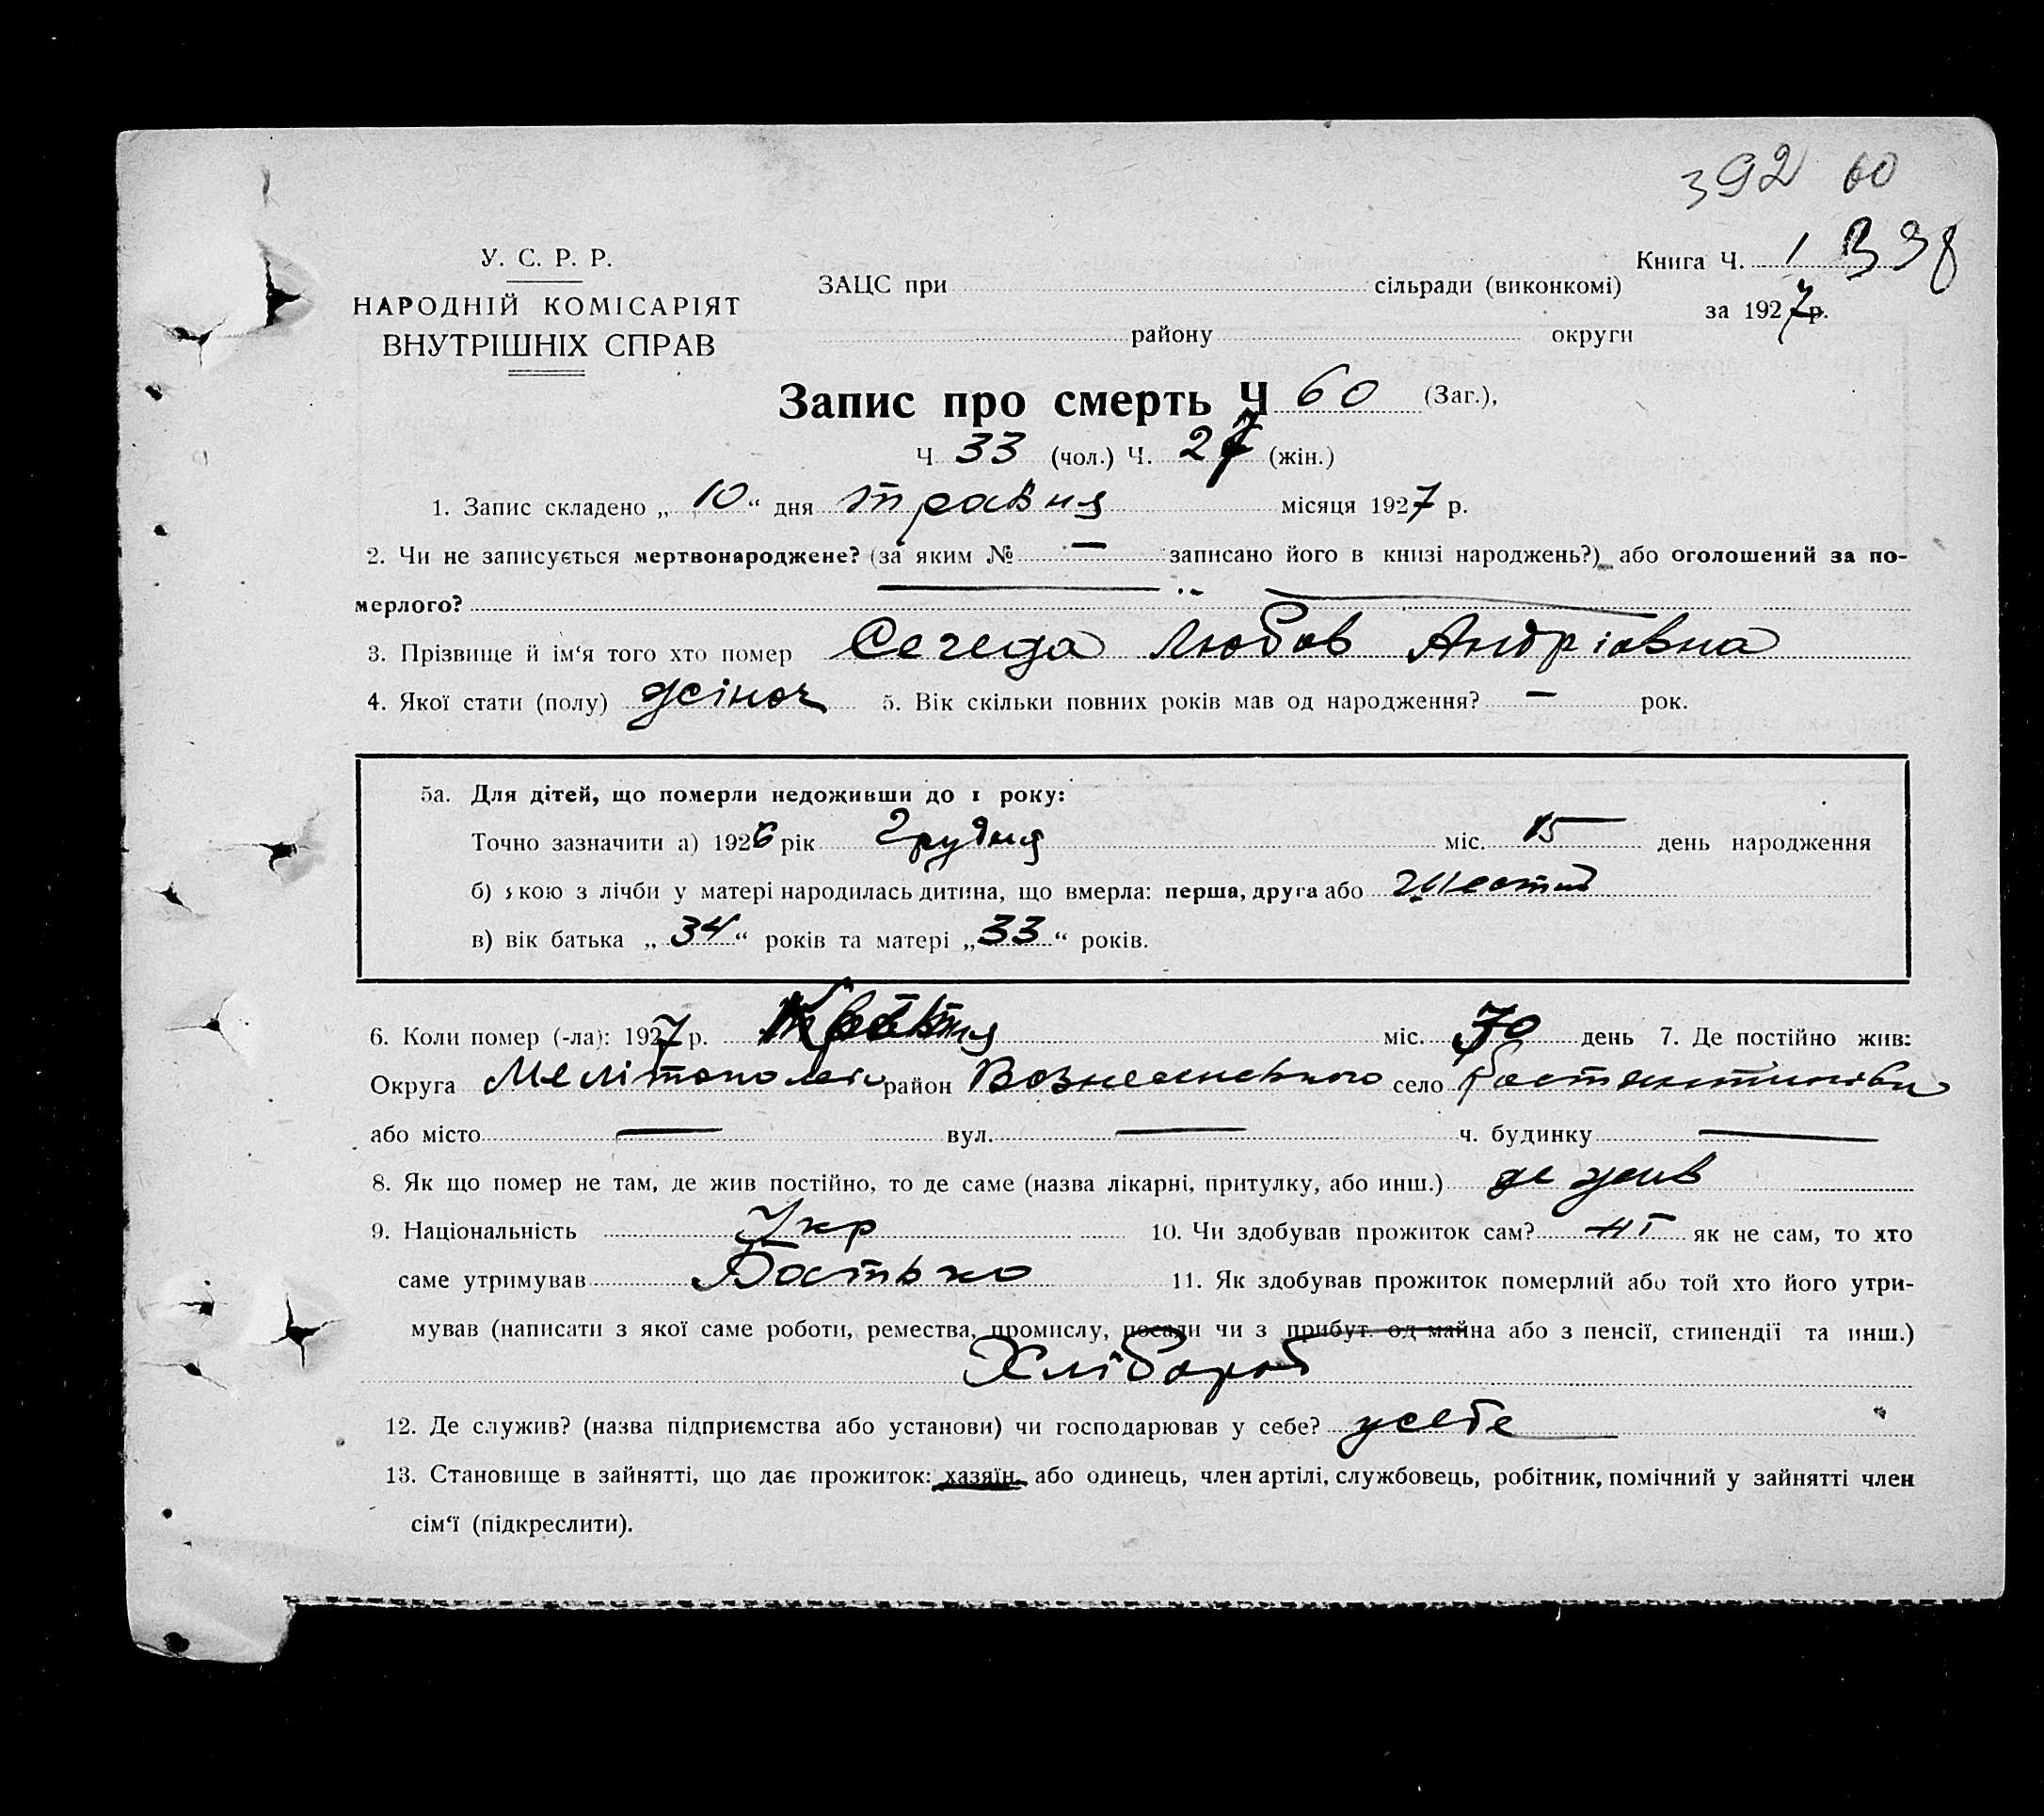 392 60
У. С. Р. Р.
НАРОДНІЙ КОМІСАРІЯТ
ВНУТРІШНІХ СПРАВ
ЗАЦС при сільради (виконкомі)
району округи
Книга Ч. 1
за 1927 р.
Запис про смерть Ч 60 (Заг.),
Ч 33 (чол.) Ч. 27 (жін.)
1. Запис складено „ 10 “ дня травня місяця 1927 р.
2. Чи не записується мертвонароджене? (за яким № — записано його в книзі народжень?) або оголошений за по-
мерлого?
3. Прізвище й ім‘я того хто помер Сегеда Любов Андріовна
4. Якої стати (полу) жіноч 5. Вік скільки повних років мав од народження? — рок.
5а. Для дітей, що померли недоживши до 1 року:
Точно зазначити а) 1926 рік Грудня міс. 15 день народження
б) якою з лічби у матері народилась дитина, що вмерла: перша, друга або
в) вік батька „ 34 “ років та матері „ 33 “ років.
6. Коли помер (-ла): 1927 р. міс. день 7. Де постійно жив:
Округа район село
або місто — вул. — ч. будинку —
8. Як що помер не там, де жив постійно, то де саме (назва лікарні, притулку, або инш.) де жив
9. Національність Укр 10. Чи здобував прожиток сам? ні як не сам, то хто
саме утримував Батько 11. Як здобував прожиток померлий або той хто його утри-
мував (написати з якої саме роботи, ремества, промислу, посади чи з прибут. од майна або з пенсії, стипендії та инш.)
Хлібороб
12. Де служив? (назва підприємства або установи) чи господарював у себе? усебе
13. Становище в зайнятті, що дає прожиток: хазяїн, або одинець, член артілі, службовець, робітник, помічний у зайнятті член
сім‘ї (підкреслити).